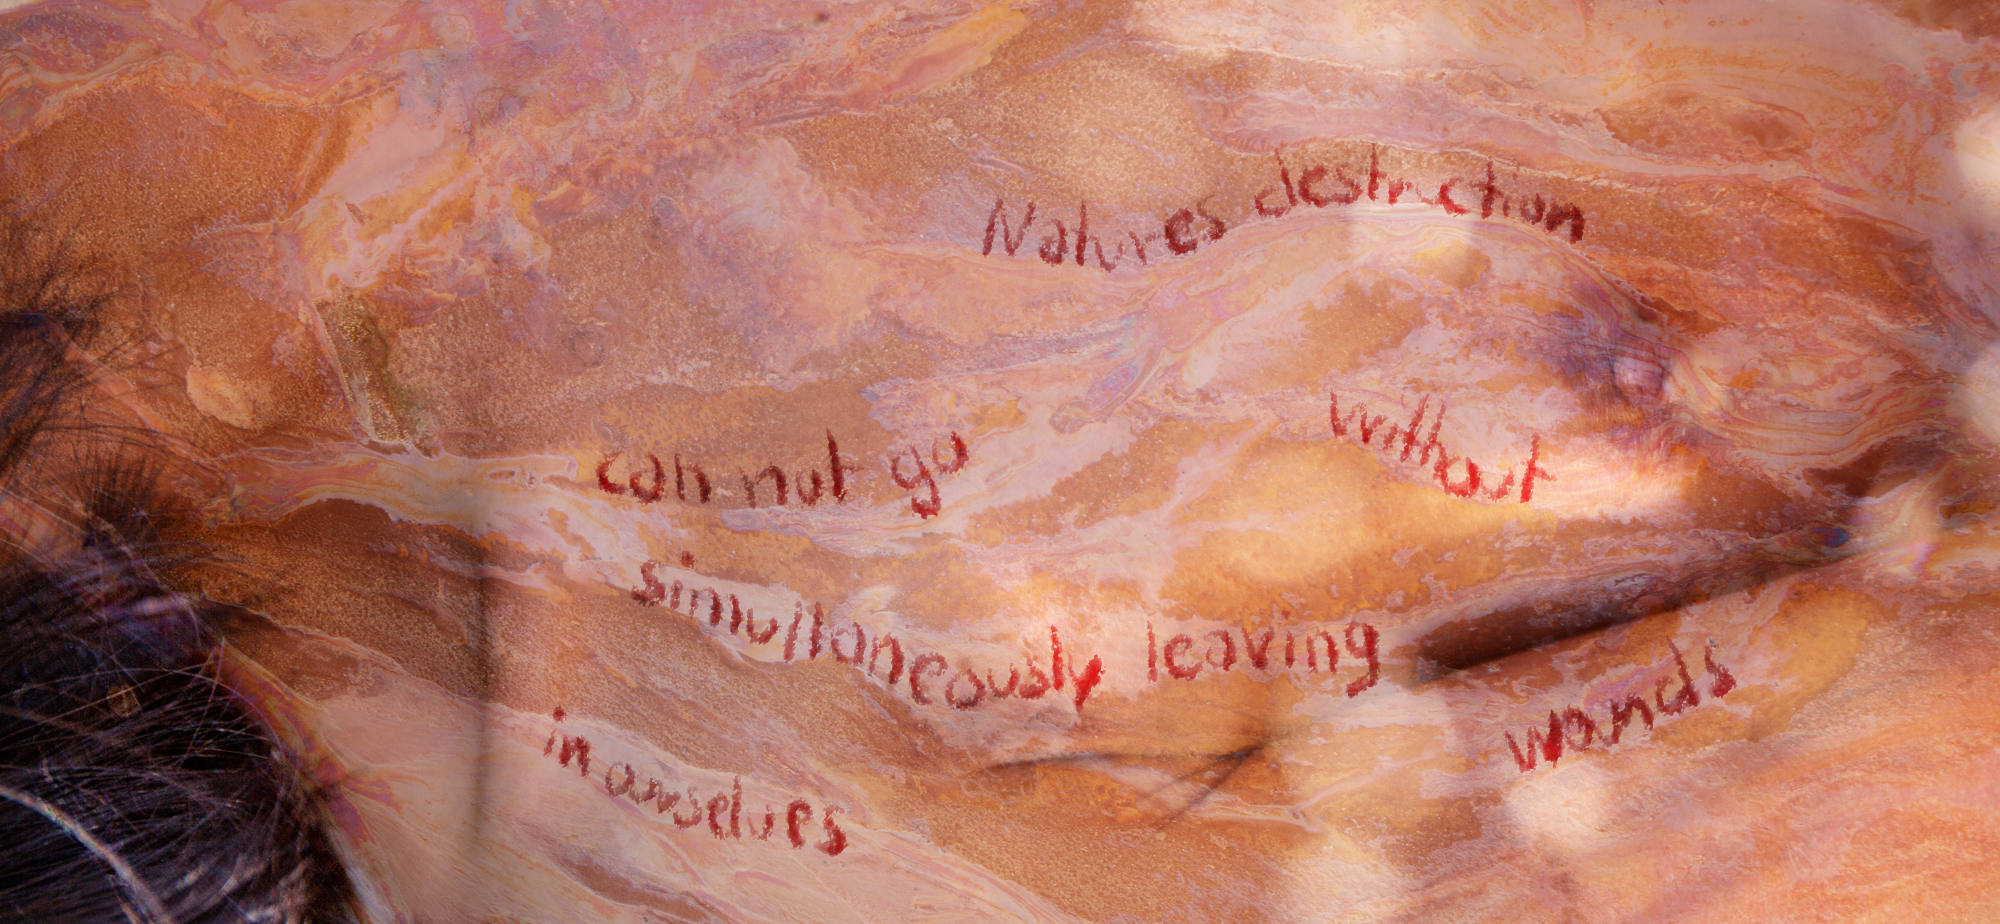 Natures destruction
can not go without
simultaneously leaving
wonds
in ourselves